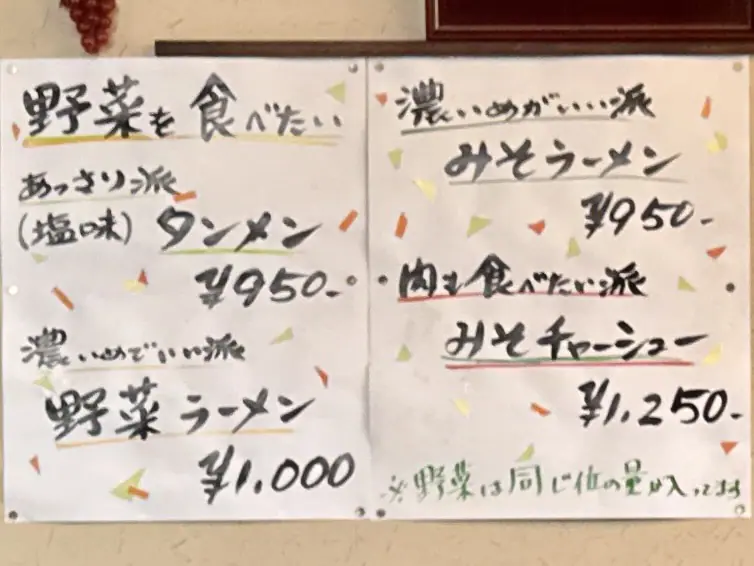 野菜を食べたい
あっさり派
(塩味) タンメン
¥950-
濃いめでいい派
野菜ラーメン
¥1,000
濃いめがいい派
みそラーメン
¥950-
肉も食べたい派
みそチャーシュー
¥1,250-
※野菜は同じ位の量が入ってます